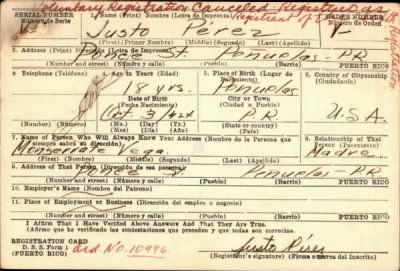 Voluntary Registration Canceled. Registered as
SERIAL NUMBER 1. Name (Print) Nombre (Letra de Imprenta) ORDER NUMBER
Número de Serie Registrant of Número de Orden
V Justo Perez V
(First) (Primer Nombre) (Middle) (Segundo) (Last) (Apellido)
2. Address (Print) Dirección (Letra de Imprenta)
Ponce St. Penuelas - PR
(Number and street) (Número y calle) (Pueblo) (Barrio) PUERTO RICO
3. Telephone (Teléfono) 4. Age in Years (Edad) 5. Place of Birth (Lugar de Nacimiento) 6. Country of Citizenship (Ciudadanía)
18 yrs. Penuelas
Date of Birth (Fecha Nacimiento) City or Town (Ciudad o Pueblo)
Oct. 3/24 P.R. U.S.A.
(Mo.) (Day) (Yr.) State or country)
(Mes) (Día) (Año) (Estado o país)
7. Name of Person Who Will Always Know Your Address (Nombre de la Persona que siempre sabrá su dirección) 8. Relationship of That Person (Parentesco)
Monserrate Vega Madre
(First) (Primer Nombre) (Middle) (Segundo) (Last) (Apellido)
9. Address of That Person (Dirección de esa persona)
Ponce St. Penuelas - PR
(Number and street) (Número y calle) (Pueblo) (Barrio) PUERTO RICO
10. Employer's Name (Nombre del Patrono)
11. Place of Employment or Business (Dirección del empleo o negocio)
(Number and street) (Número y calle) (Pueblo) (Barrio) PUERTO RICO
I Affirm That I Have Verified Above Answers And That They Are True.
(Afirmo que he verificado las contestaciones que preceden y que todas son correctas.
REGISTRATION CARD
D. S. S. Form 1 Ord No. 10996 Justo Pérez
(Registrant's signature) (Firma o marca del Inscrito)